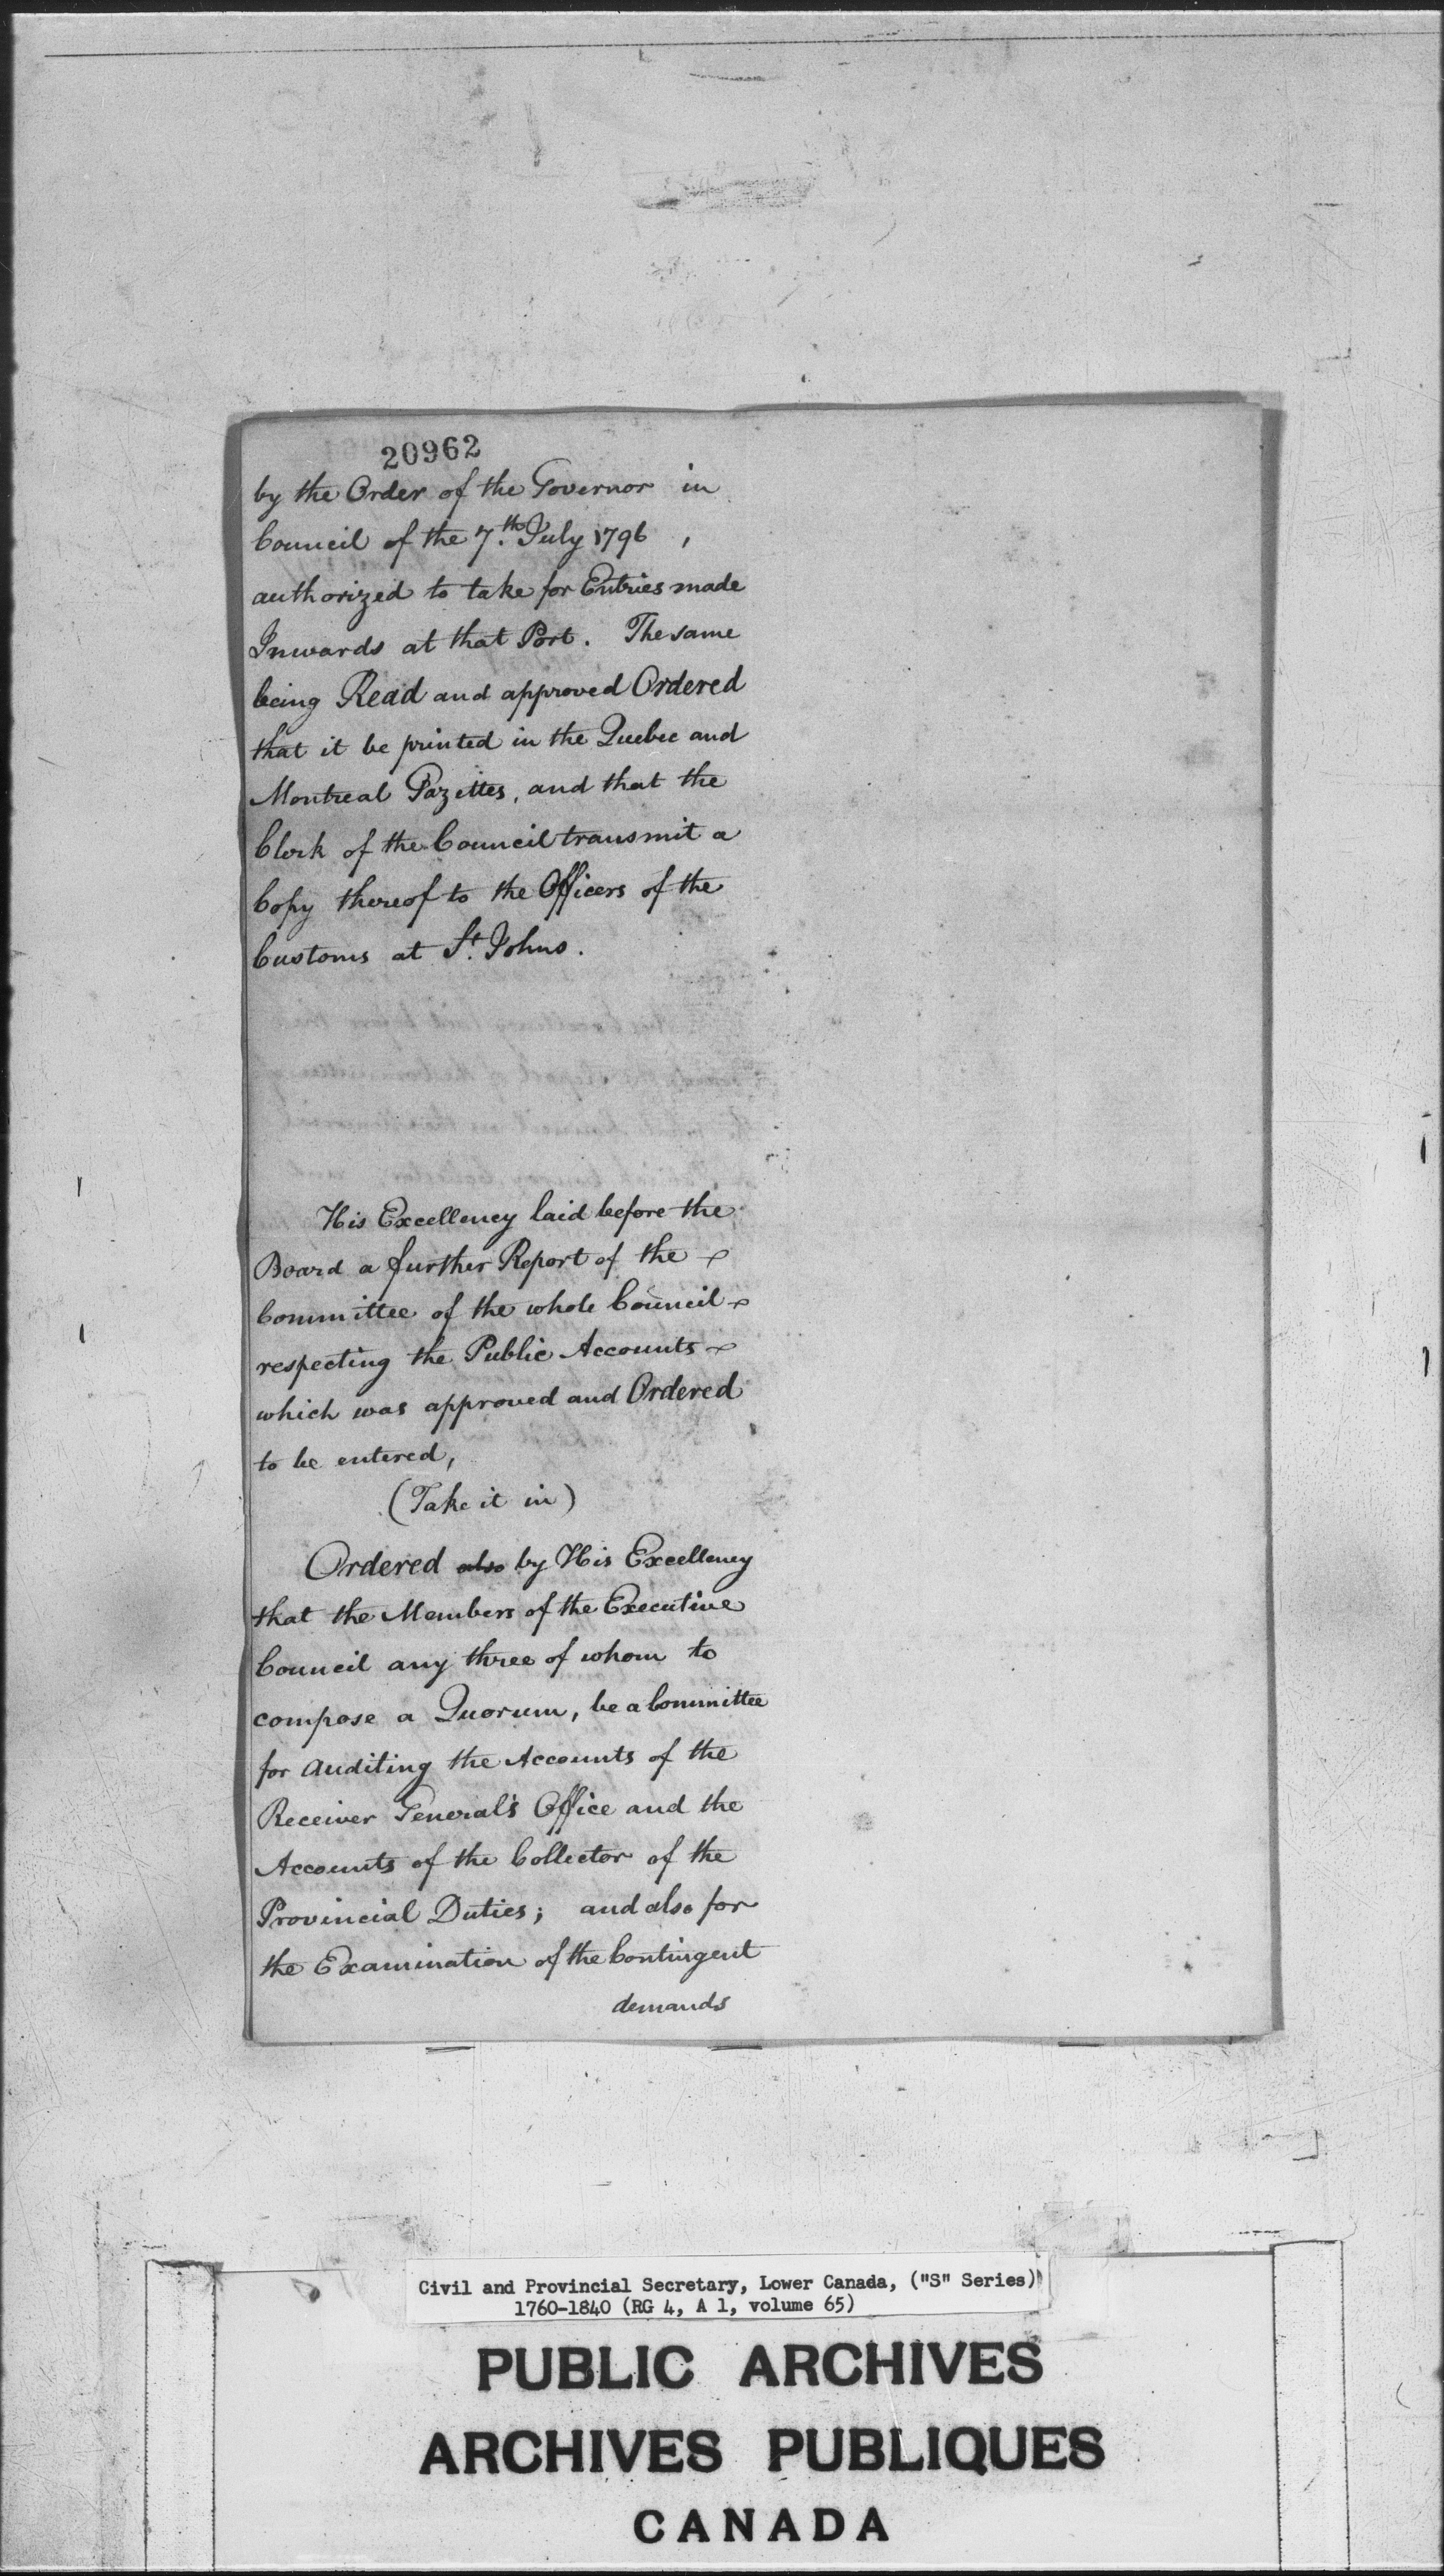 20962
by the Order of the Governor in
Council of the 7.th July 1796,
authorized to take for Entries made
Inwards at that Port. The same
being Read and approved Ordered
that it be printed in the Quebec and
Montreal Gazettes, and that the
Clerk of the Council transmit a
Copy thereof to the Officers of the
Customs at St. Johns.
His Excellency laid before the
Board a further Report of the
Committee of the whole Council
respecting the Public Accounts
which was approved and Ordered
to be entered,
(Take it in)
Ordered also by His Excellency
that the Members of the Executive
Council any three of whom to
compose a Quorum, be a Committee
for Auditing the Accounts of the
Receiver General's Office and the
Accounts of the Collector of the
Provincial Duties; and also for
the Examination of the Contingent
demands
Civil and Provincial Secretary, Lower Canada, ("S" Series)
1760-1840 (RG 4, A 1, volume 65)
PUBLIC ARCHIVES
ARCHIVES PUBLIQUES
CANADA